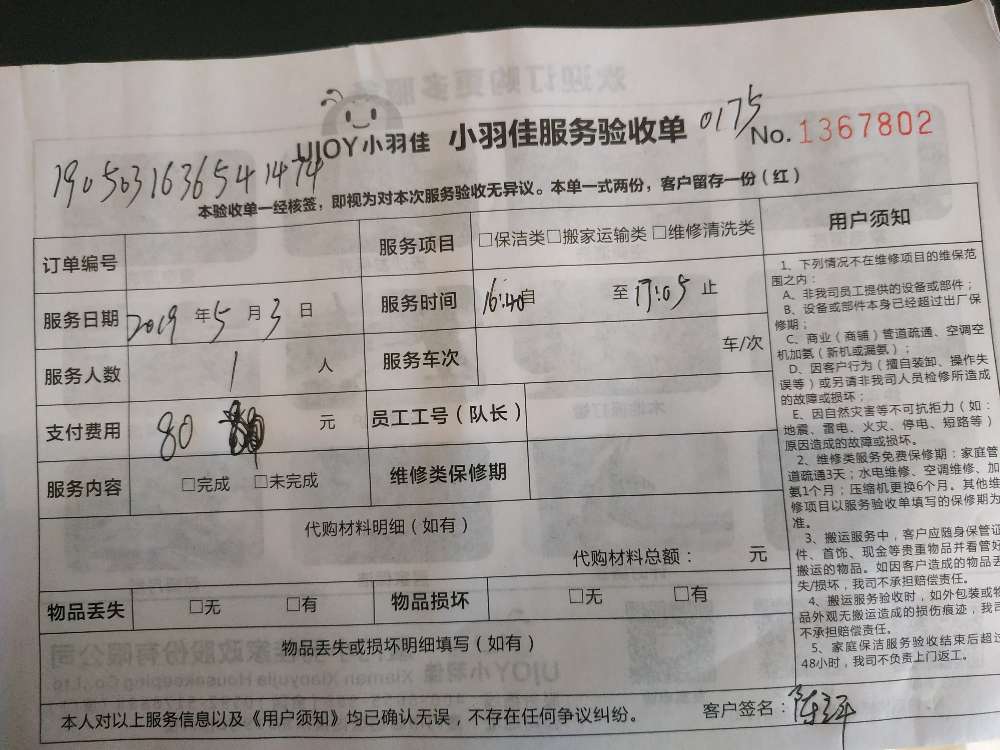 UJOY小羽佳 小羽佳服务验收单 0175 No.1367802
1905031636541474
本验收单一经核签，即视为对本次服务验收无异议。本单一式两份，客户留存一份（红）
订单编号 服务项目 □保洁类□搬家运输类 □维修清洗类
服务日期 2019 年 5 月 3 日 服务时间 16:40自 至 17:05 止
服务人数 1 人 服务车次 车/次
支付费用 80 元 员工工号（队长）
服务内容 □完成 □未完成 维修类保修期
代购材料明细（如有）
代购材料总额： 元
物品丢失 □无 □有 物品损坏 □无 □有
物品丢失或损坏明细填写（如有）
本人对以上服务信息以及《用户须知》均已确认无误，不存在任何争议纠纷。 客户签名：陈
用户须知
1、下列情况不在维修项目的维保范
围之内：
A、非我司员工提供的设备或部件；
B、设备或部件本身已经超过出厂保
修期；
C、商业（商铺）管道疏通、空调空
机加氨（新机或漏氨）；
D、因客户行为（擅自装卸、操作失
误等）或另请非我司人员检修所造成
的故障或损坏；
E、因自然灾害等不可抗拒力（如：
地震、雷电、火灾、停电、短路等）
原因造成的故障或损坏。
2、维修类服务免费保修期：家庭管
道疏通3天；水电维修、空调维修、加
氨1个月；压缩机更换6个月。其他维
修项目以服务验收单填写的保修期为
准。
3、搬运服务中，客户应随身保管证
件、首饰、现金等贵重物品并看管好
搬运的物品。如因客户造成的物品丢
失/损坏，我司不承担赔偿责任。
4、搬运服务验收时，如外包装或物
品外观无搬运造成的损伤痕迹，我司
不承担赔偿责任。
5、家庭保洁服务验收结束后超过
48小时，我司不负责上门返工。